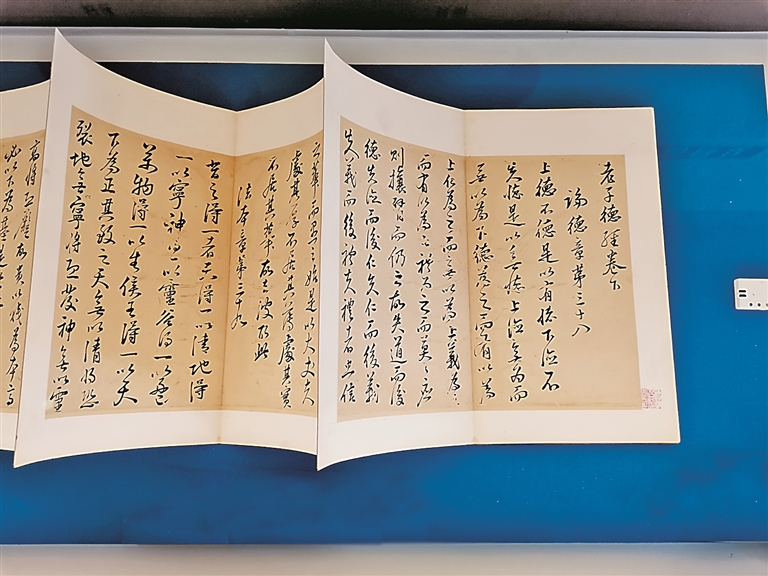 老子德經卷下
論德章第三十八
上德不德是以有德下德不
失德是以無德上德無為而
無以為下德為之而有以為
上仁為之而無以為上義為之
而有以為上禮為之而莫之應
則攘臂而仍之故失道而後
德失德而後仁失仁而後義
失義而後禮夫禮者忠信
之華而愚之始是以大丈夫
處其厚不居其薄處其實
不居其華故去彼取此
法本章第三十九
昔之得一者天得一以清地得
一以寧神得以靈谷得一以盈
萬物得一以生侯王得一以天
下為正其致之天無以清將恐
裂地無寧將恐發神無以靈
高將恐蹶故貴以賤為本高
必以下為基是